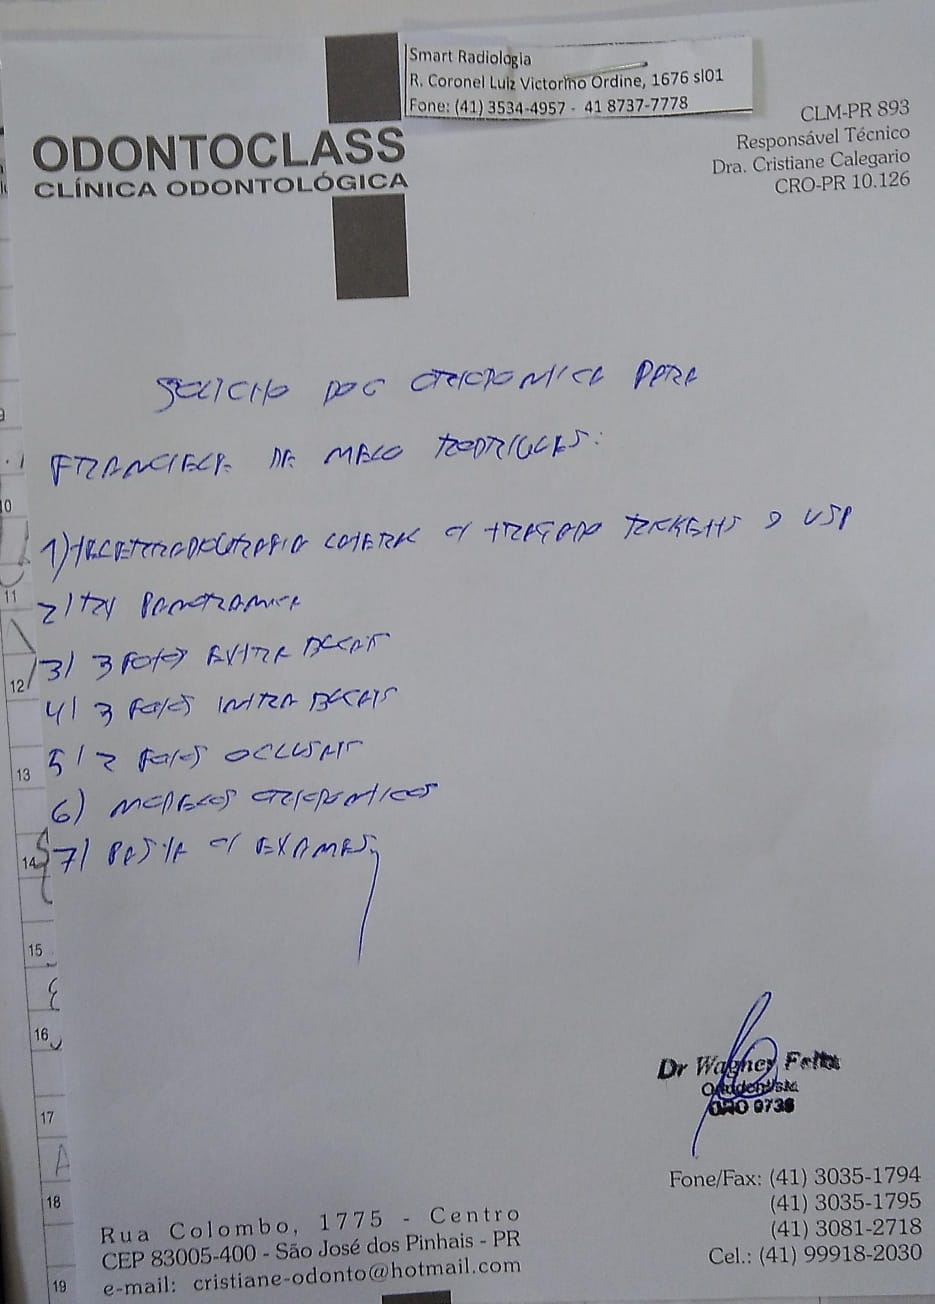 Smart Radiologia
R. Coronel Luiz Victorino Ordine, 1676 sl01
Fone: (41) 3534-4957 - 41 8737-7778
CLM-PR 893
Responsável Técnico
Dra. Cristiane Calegario
CRO-PR 10.126
ODONTOCLASS
CLÍNICA ODONTOLÓGICA
SOLICITO DOC ORTODONTICA PARA
FRANCIELE DE MELO RODRIGUES:
1) TELERRADIOGRAFIA LATERAL C/ TRAÇADO E USP
2) RX PANORAMICA
3) 3 FOTOS EXTRA BUCAIS
4) 3 FOTOS INTRA BUCAIS
5) 2 FOTOS OCLUSAIS
6) MODELOS ORTODONTICOS
7) PASTA C/ EXAMES
9
10
11
12
13
14
15
16
17
18
19
Dr Wagner
Ortodontista
CRO 9736
Fone/Fax: (41) 3035-1794
(41) 3035-1795
(41) 3081-2718
Cel.: (41) 99918-2030
Rua Colombo, 1775 - Centro
CEP 83005-400 - São José dos Pinhais - PR
e-mail: cristiane-odonto@hotmail.com